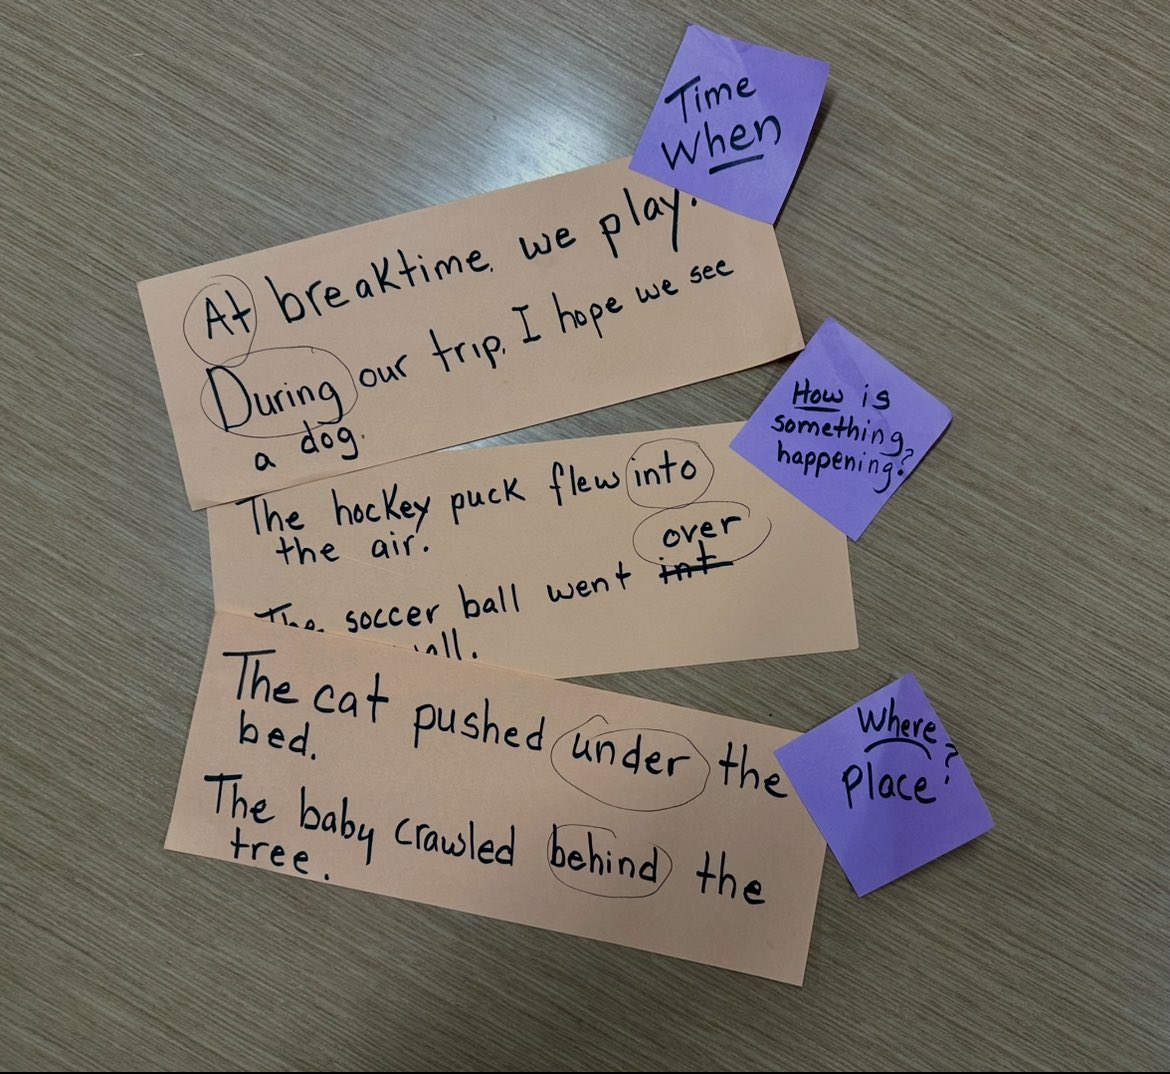 Time
When
At breaktime, we play.
During our trip, I hope we see
a dog.
How is
something
happening?
The hockey puck flew into
the air.
over
The soccer ball went int
Where?
Place
The cat pushed under the
bed.
The baby crawled behind the
tree.